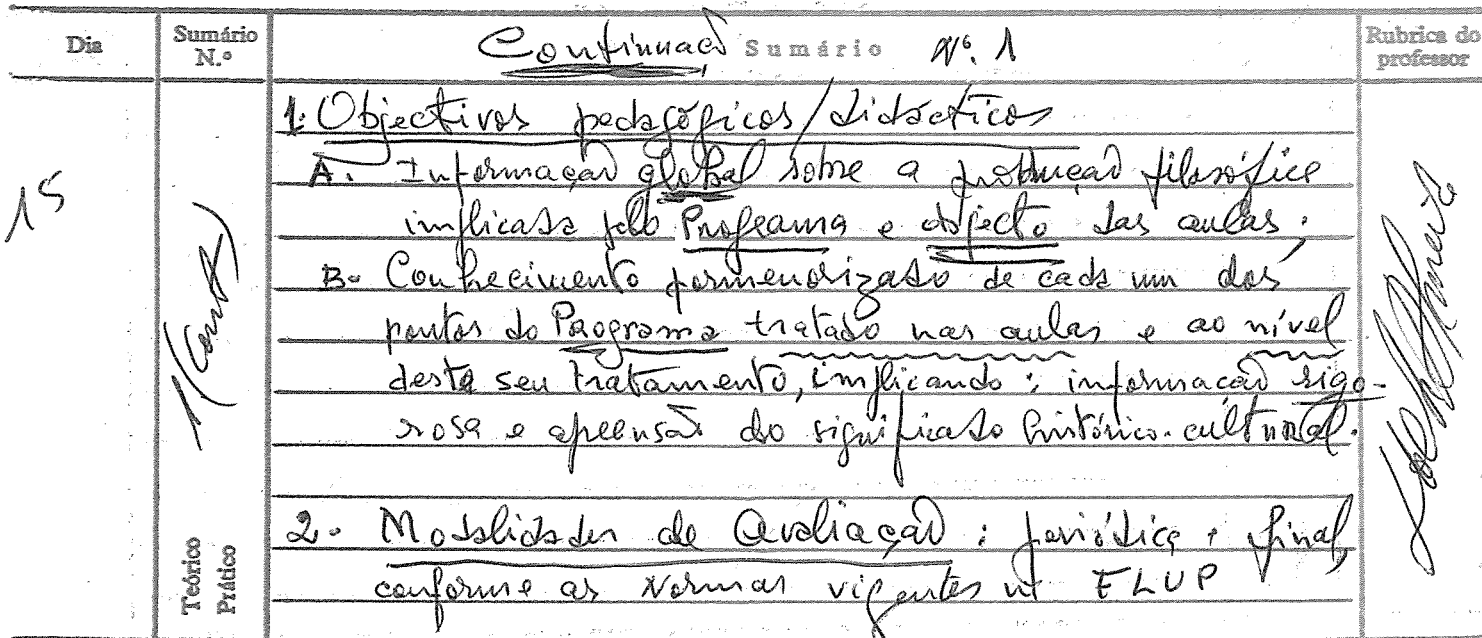 Dia
Sumário N.º
Continuação Sumário Nº. 1
Rubrica do professor
15
1. Objectivos pedagógicos/didácticos
A. Informação global sobre a produção filosófica
implicada pelo Programa e objecto das aulas;
B. Conhecimento pormenorizado de cada um dos
pontos do Programa tratado nas aulas e ao nível
deste seu tratamento, implicando: informação rigo-
rosa e apreensão do significado histórico-cultural.
2. Modalidades de Avaliação: periódica e final,
conforme as Normas vigentes na FLUP
Teórico
Prático